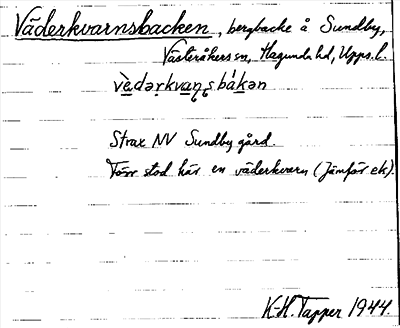 Väderkvarnsbacken, bergbacke å Sundby,
Västeråkers sn, Hagunda hd, Upps. l.
vèdərkvaɳʂbákən
Strax NV Sundby gård.
Förr stod här en väderkvarn (jämför ek).
K-H. Tapper 1944.